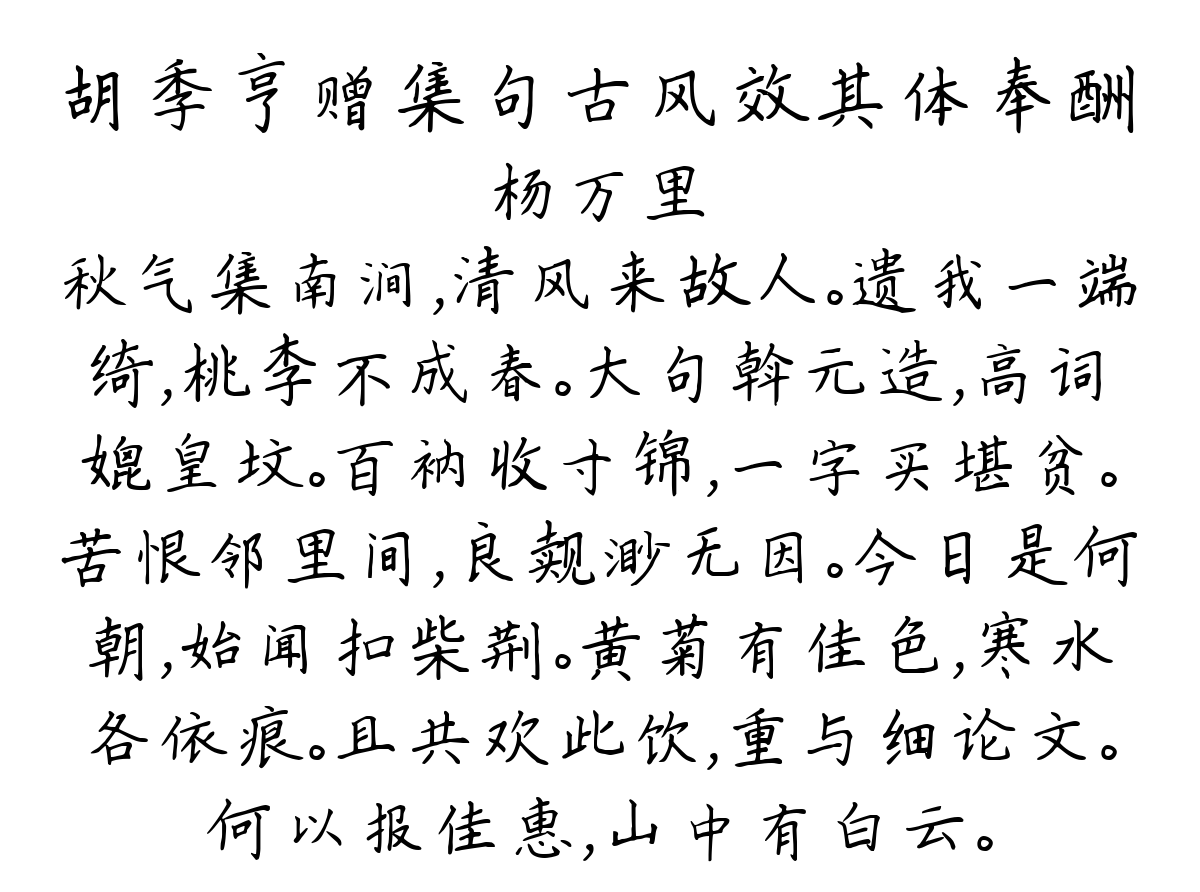 胡季亨赠集句古风效其体奉酬
杨万里
秋气集南涧,清风来故人。遗我一端
绮,桃李不成春。大句斡元造,高词
媲皇坟。百衲收寸锦,一字买堪贫。
苦恨邻里间,良觌渺无因。今日是何
朝,始闻扣柴荆。黄菊有佳色,寒水
各依痕。且共欢此饮,重与细论文。
何以报佳惠,山中有白云。